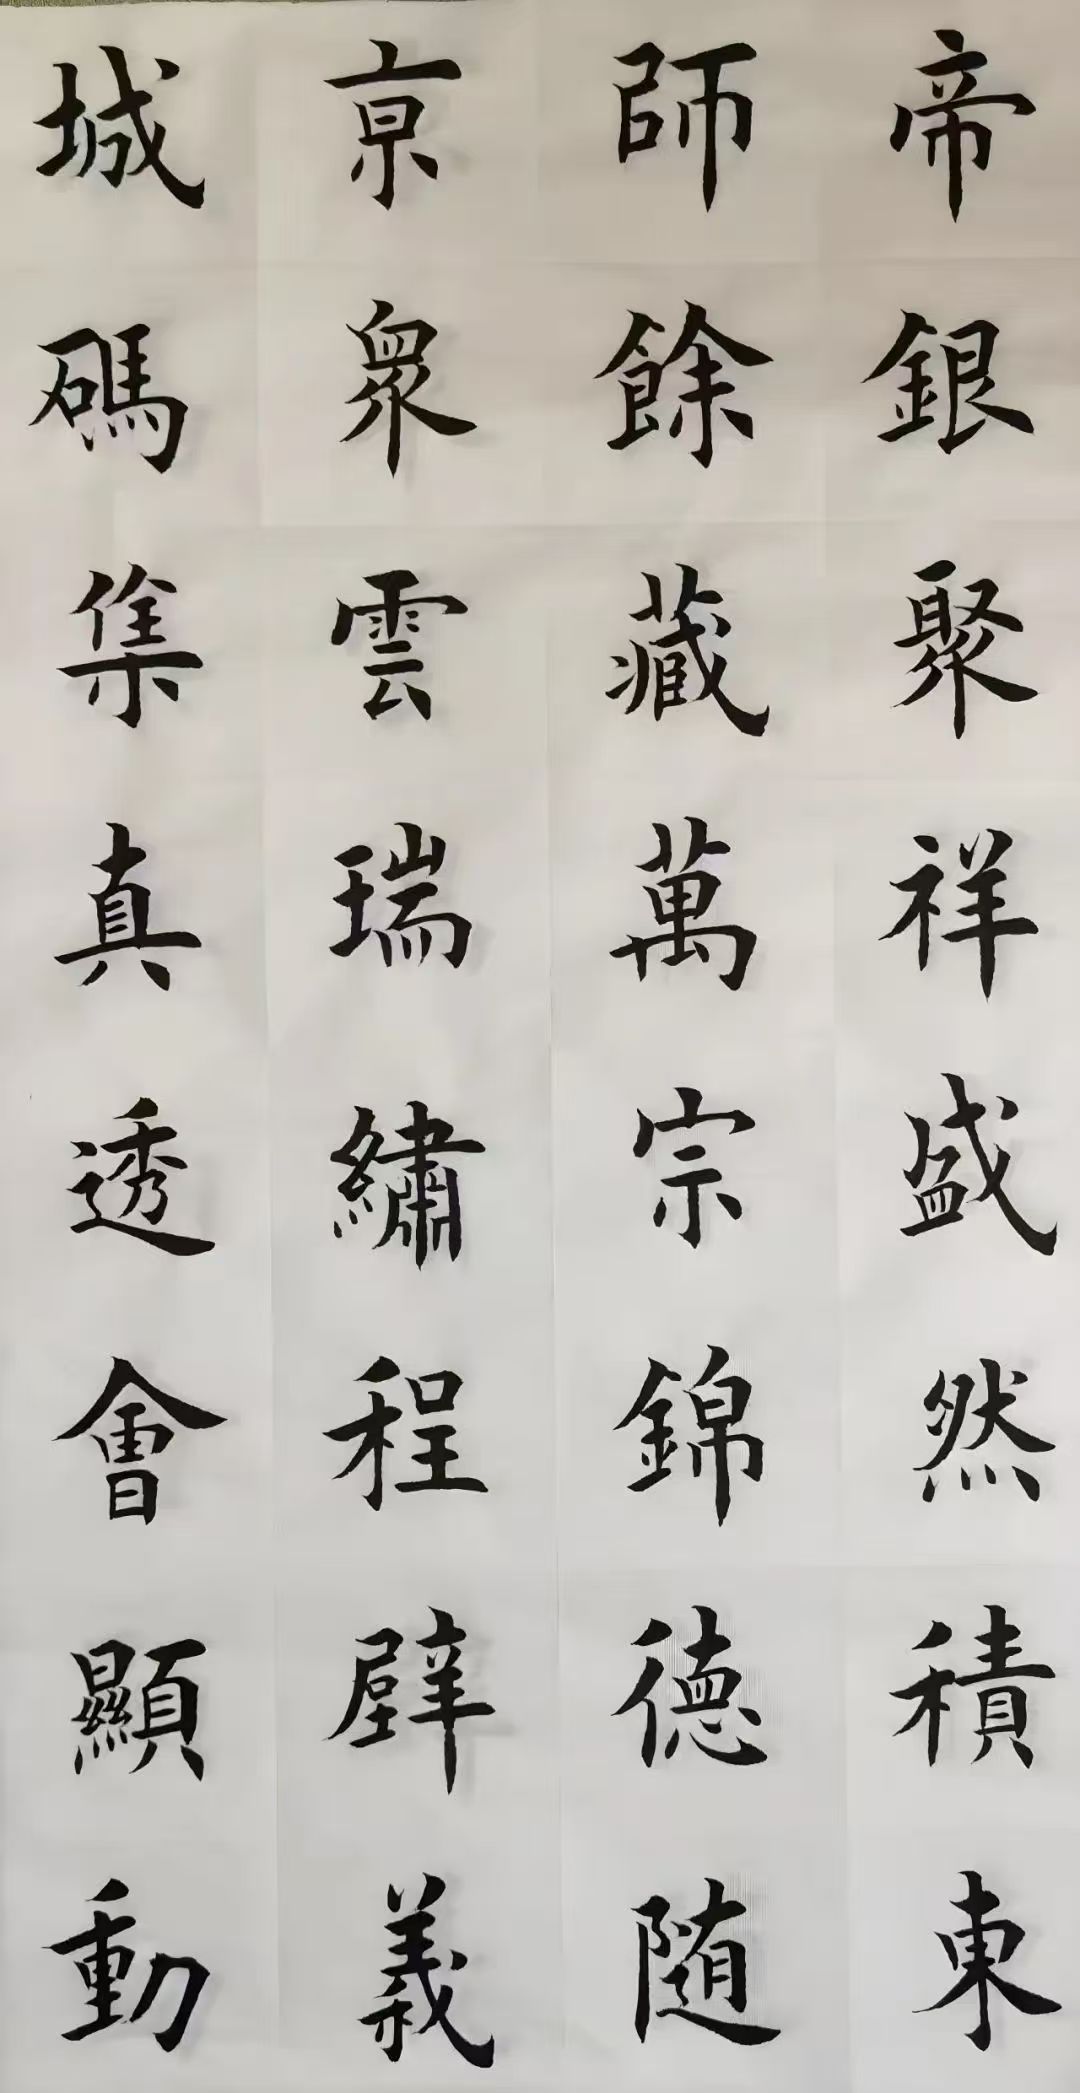 帝銀聚祥盛然積東
師餘藏萬宗錦德随
亰眾雲瑞繡程壁義
城碼集真透會顯動